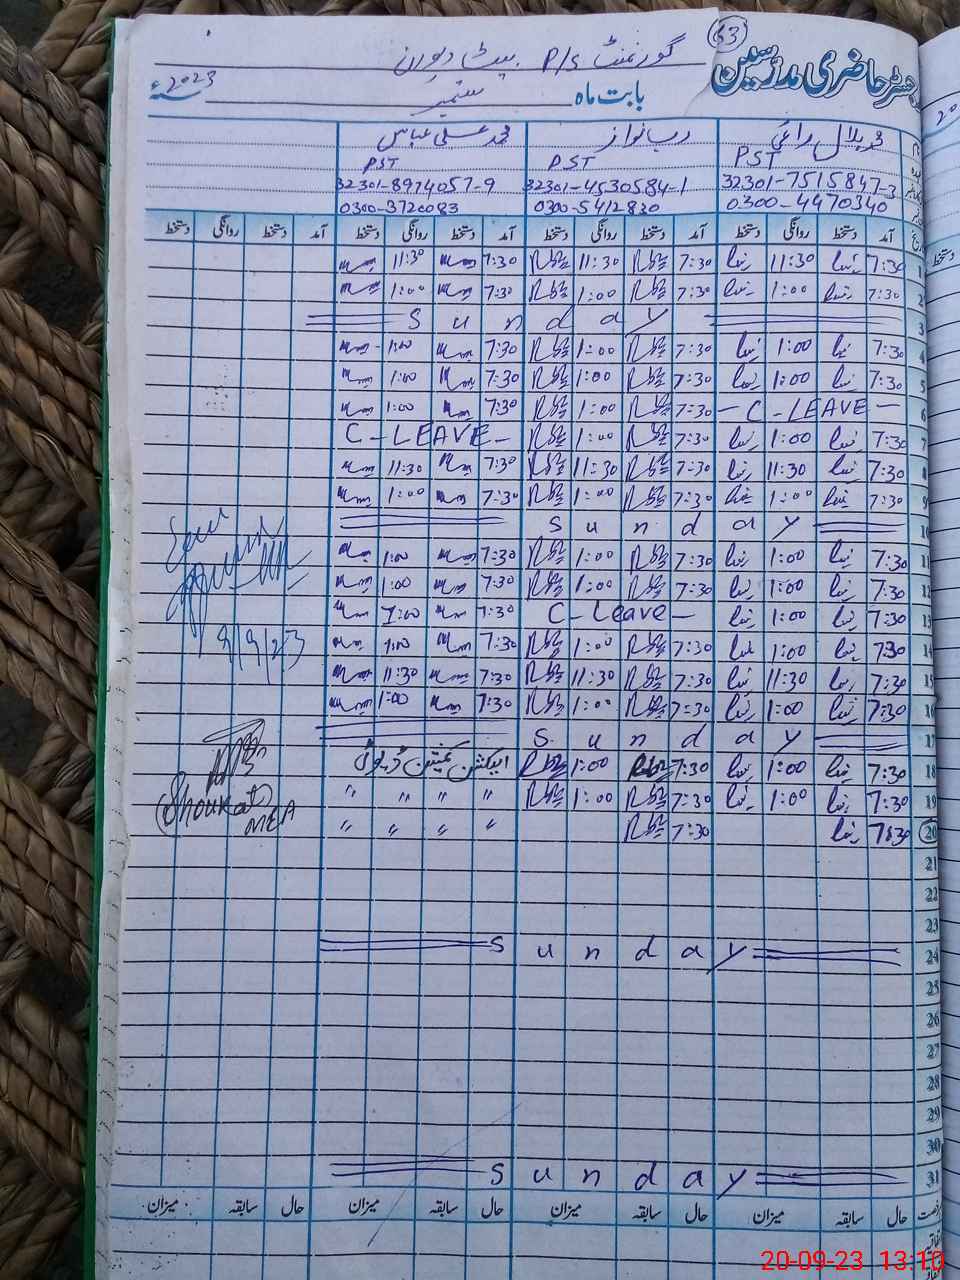 53
رجسٹر حاضری مدرسین
گورنمنٹ P/S بیٹ دیورن
بابت ماہ ستمبر 2023ء
محمد بلال راعی رب نواز محمد علی عباس
PST PST PST
32301-7515847-3 32301-4530584-1 32301-8974057-9
0300-4470340 0300-5412830 0300-3720083
آمد دستخط روانگی دستخط آمد دستخط روانگی دستخط آمد دستخط روانگی دستخط آمد دستخط روانگی دستخط
1 7:30 11:30 7:30 11:30 7:30 11:30
2 7:30 1:00 7:30 1:00 7:30 1:00
3 Sunday
4 7:30 1:00 7:30 1:00 7:30 1:00
5 7:30 1:00 7:30 1:00 7:30 1:00
6 - C - LEAVE - 7:30 1:00 7:30 1:00
7 7:30 1:00 7:30 1:00 C - LEAVE -
8 7:30 11:30 7:30 11:30 7:30 11:30
9 7:30 1:00 7:30 1:00 7:30 1:00
10 Sunday
11 7:30 1:00 7:30 1:00 7:30 1:00
12 7:30 1:00 7:30 1:00 7:30 1:00
13 7:30 1:00 C - Leave - 7:30 1:00
14 7:30 1:00 7:30 1:00 7:30 1:00
15 7:30 11:30 7:30 11:30 7:30 11:30
16 7:30 1:00 7:30 1:00 7:30 1:00
17 Sunday
18 7:30 1:00 7:30 1:00 الیکشن کمیشن ڈیوٹی
19 7:30 1:00 7:30 1:00 " " " "
20 7:30 7:30 " " " "
Shoukat
MEA
21
22
23
24 Sunday
25
26
27
28
29
30
31 Sunday
حال سابقہ میزان حال سابقہ میزان حال سابقہ میزان حال سابقہ میزان
20-09-23 13:10